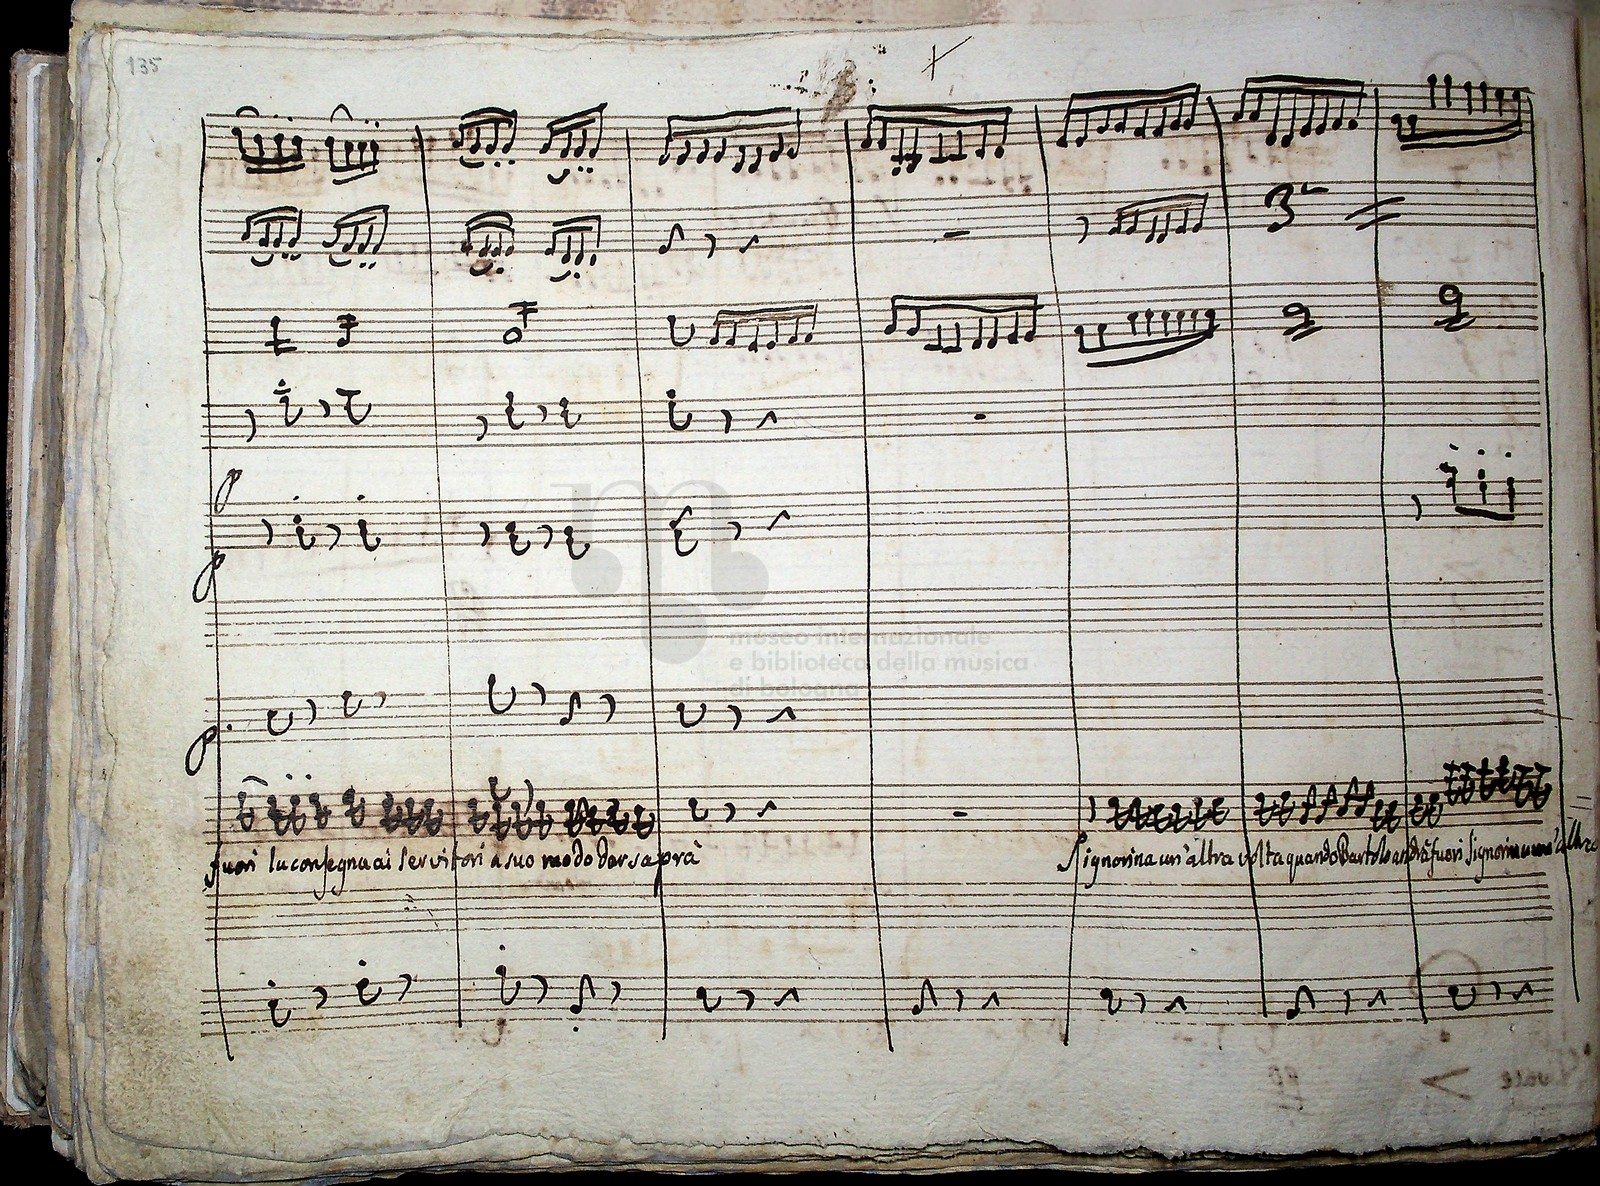 135
museo internazionale
e biblioteca della musica
di bologna
fuori la consegna ai servitori a suo modo dar saprà
Signorina un'altra volta quando Bartolo andrà fuori Signorina un'altra